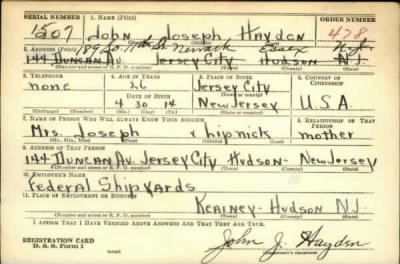 SERIAL NUMBER 1. NAME (Print) ORDER NUMBER
1507 John Joseph Hayden 478
189 So. 11th St Newark Essex N.J.
2. ADDRESS (Print)
144 Duncan Av. Jersey City Hudson N.J.
(Number and street or R. F. D. number) (Town) (County) (State)
3. TELEPHONE 4. AGE IN YEARS 5. PLACE OF BIRTH 6. COUNTRY OF CITIZENSHIP
none 26 Jersey City
DATE OF BIRTH
4 30 14 New Jersey U.S.A.
(Exchange) (Number) (Mo.) (Day) (Yr.) (State or country)
7. NAME OF PERSON WHO WILL ALWAYS KNOW YOUR ADDRESS 8. RELATIONSHIP OF THAT PERSON
Mrs. Joseph mother
(Mr., Mrs., Miss) (First) (Middle) (Last)
9. ADDRESS OF THAT PERSON
144 Duncan Av. Jersey City Hudson- New Jersey
(Number and street or R. F. D. number) (Town) (County) (State)
10. EMPLOYER'S NAME
Federal Shipyards
11. PLACE OF EMPLOYMENT OR BUSINESS
Kearney- Hudson N.J.
(Number and street or R. F. D. number) (Town) (County) (State)
I AFFIRM THAT I HAVE VERIFIED ABOVE ANSWERS AND THAT THEY ARE TRUE.
REGISTRATION CARD
D. S. S. Form 1 (over) John J. Hayden
(Registrant's signature)